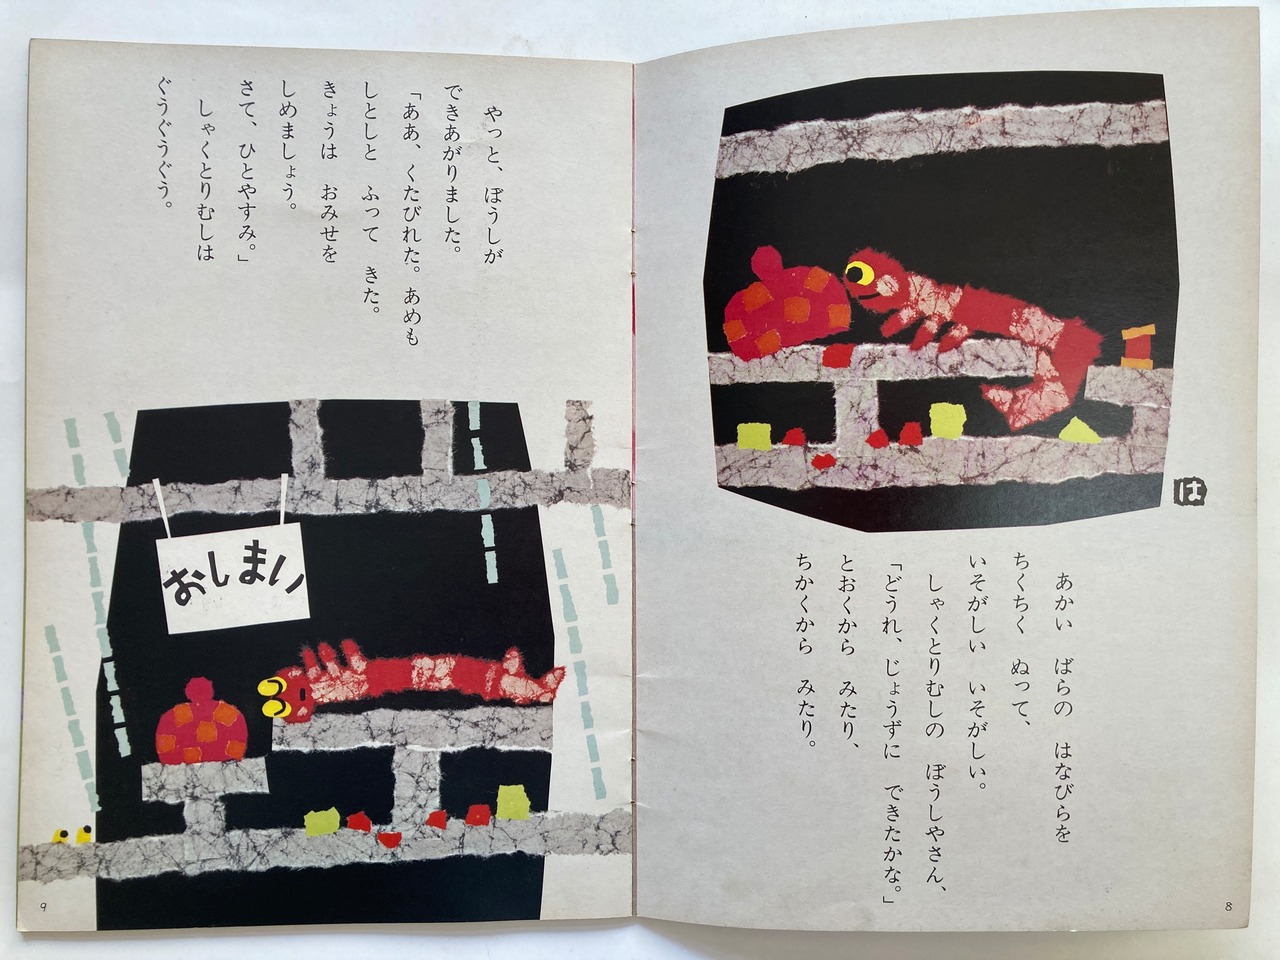 は
あかい　ばらの　はなびらを
ちくちく　ぬって、
いそがしい　いそがしい。
しゃくとりむしの　ぼうしやさん、
「どうれ、じょうずに　できたかな。」
とおくから　みたり、
ちかくから　みたり。
8
やっと、ぼうしが
できあがりました。
「ああ、くたびれた。あめも
しとしと　ふって　きた。
きょうは　おみせを
しめましょう。
さて、ひとやすみ。」
しゃくとりむしは
ぐうぐうぐう。
おしまい
9